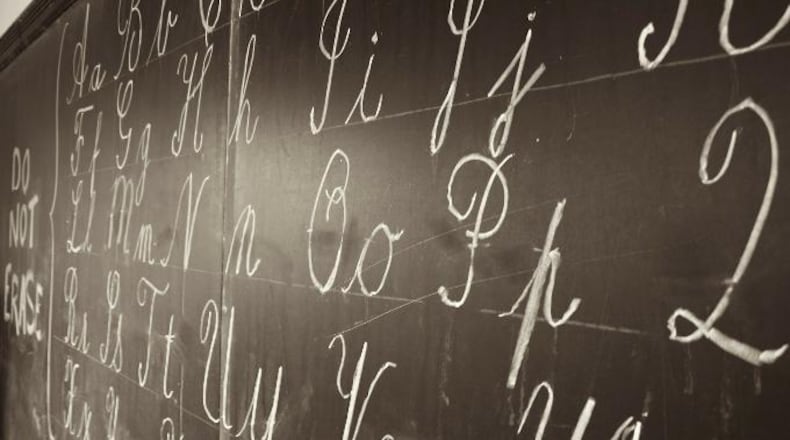 DO
NOT
ERASE
Aa Bb
Ff Gg Hh Ii Jj
Ll Mm Nn Oo Pp Q
Rr Ss Tt Uu V
Xx Y